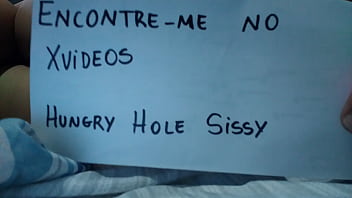 ENCONTRE-ME NO
XVIDEOS
HUNGRY HOLE SISSY